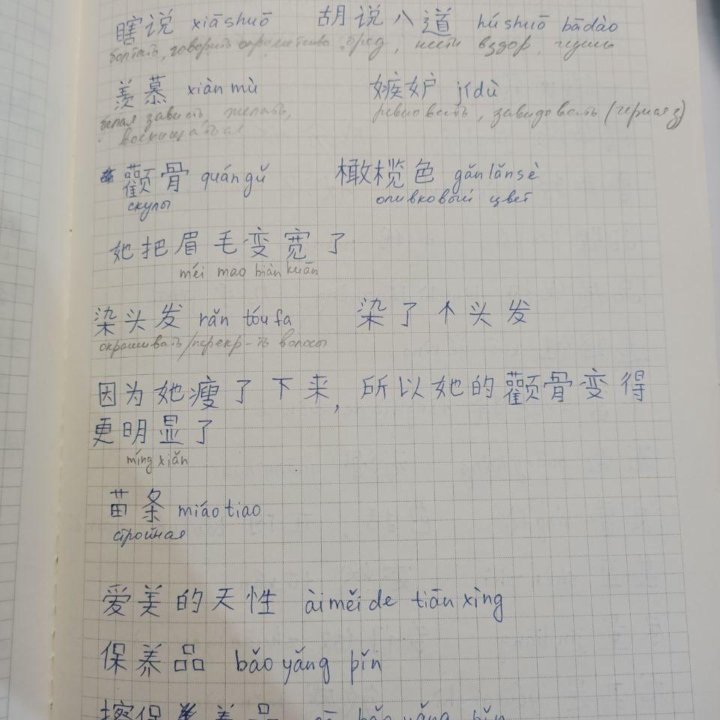 瞎说 xiāshuō 胡说八道 húshuō bādào
болтать, говорить бред, нести вздор, чушь
羡慕 xiànmù 嫉妒 jídù
белая зависть, желать, ревновать, завидовать (черная з)
восхищаться
颧骨 quángǔ 橄榄色 gǎnlǎnsè
скулы оливковый цвет
她把眉毛变宽了
méi mao biàn kuān
染头发 rǎn tóufa 染了个头发
окрашивать/перекр-ть волосы
因为她瘦了下来, 所以她的颧骨变得
更明显了
míng xiǎn
苗条 miáotiao
стройная
爱美的天性 àiměide tiānxìng
保养品 bǎoyǎng pǐn
擦保养品 bǎo yǎng pǐn